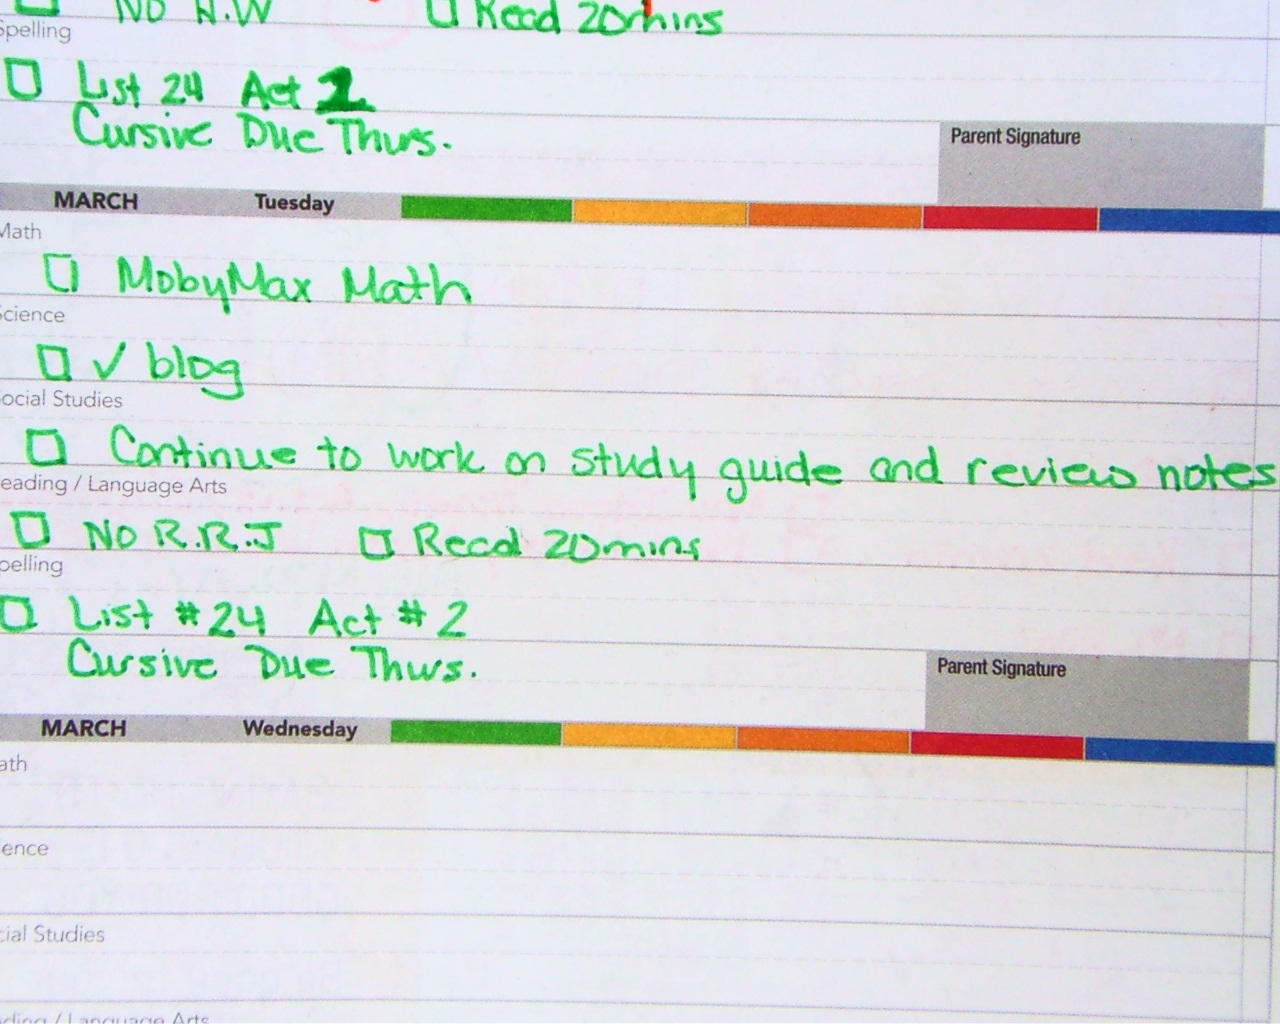 No H.W Read 20mins
Spelling
List 24 Act 1
Cursive Due Thurs.
Parent Signature
MARCH Tuesday
Math
MobyMax Math
Science
✓ blog
ocial Studies
Continue to work on study guide and review notes
eading / Language Arts
No R.R.J Read 20mins
pelling
List #24 Act #2
Cursive Due Thurs.
Parent Signature
MARCH Wednesday
ath
ence
cial Studies
ding / Language Arts